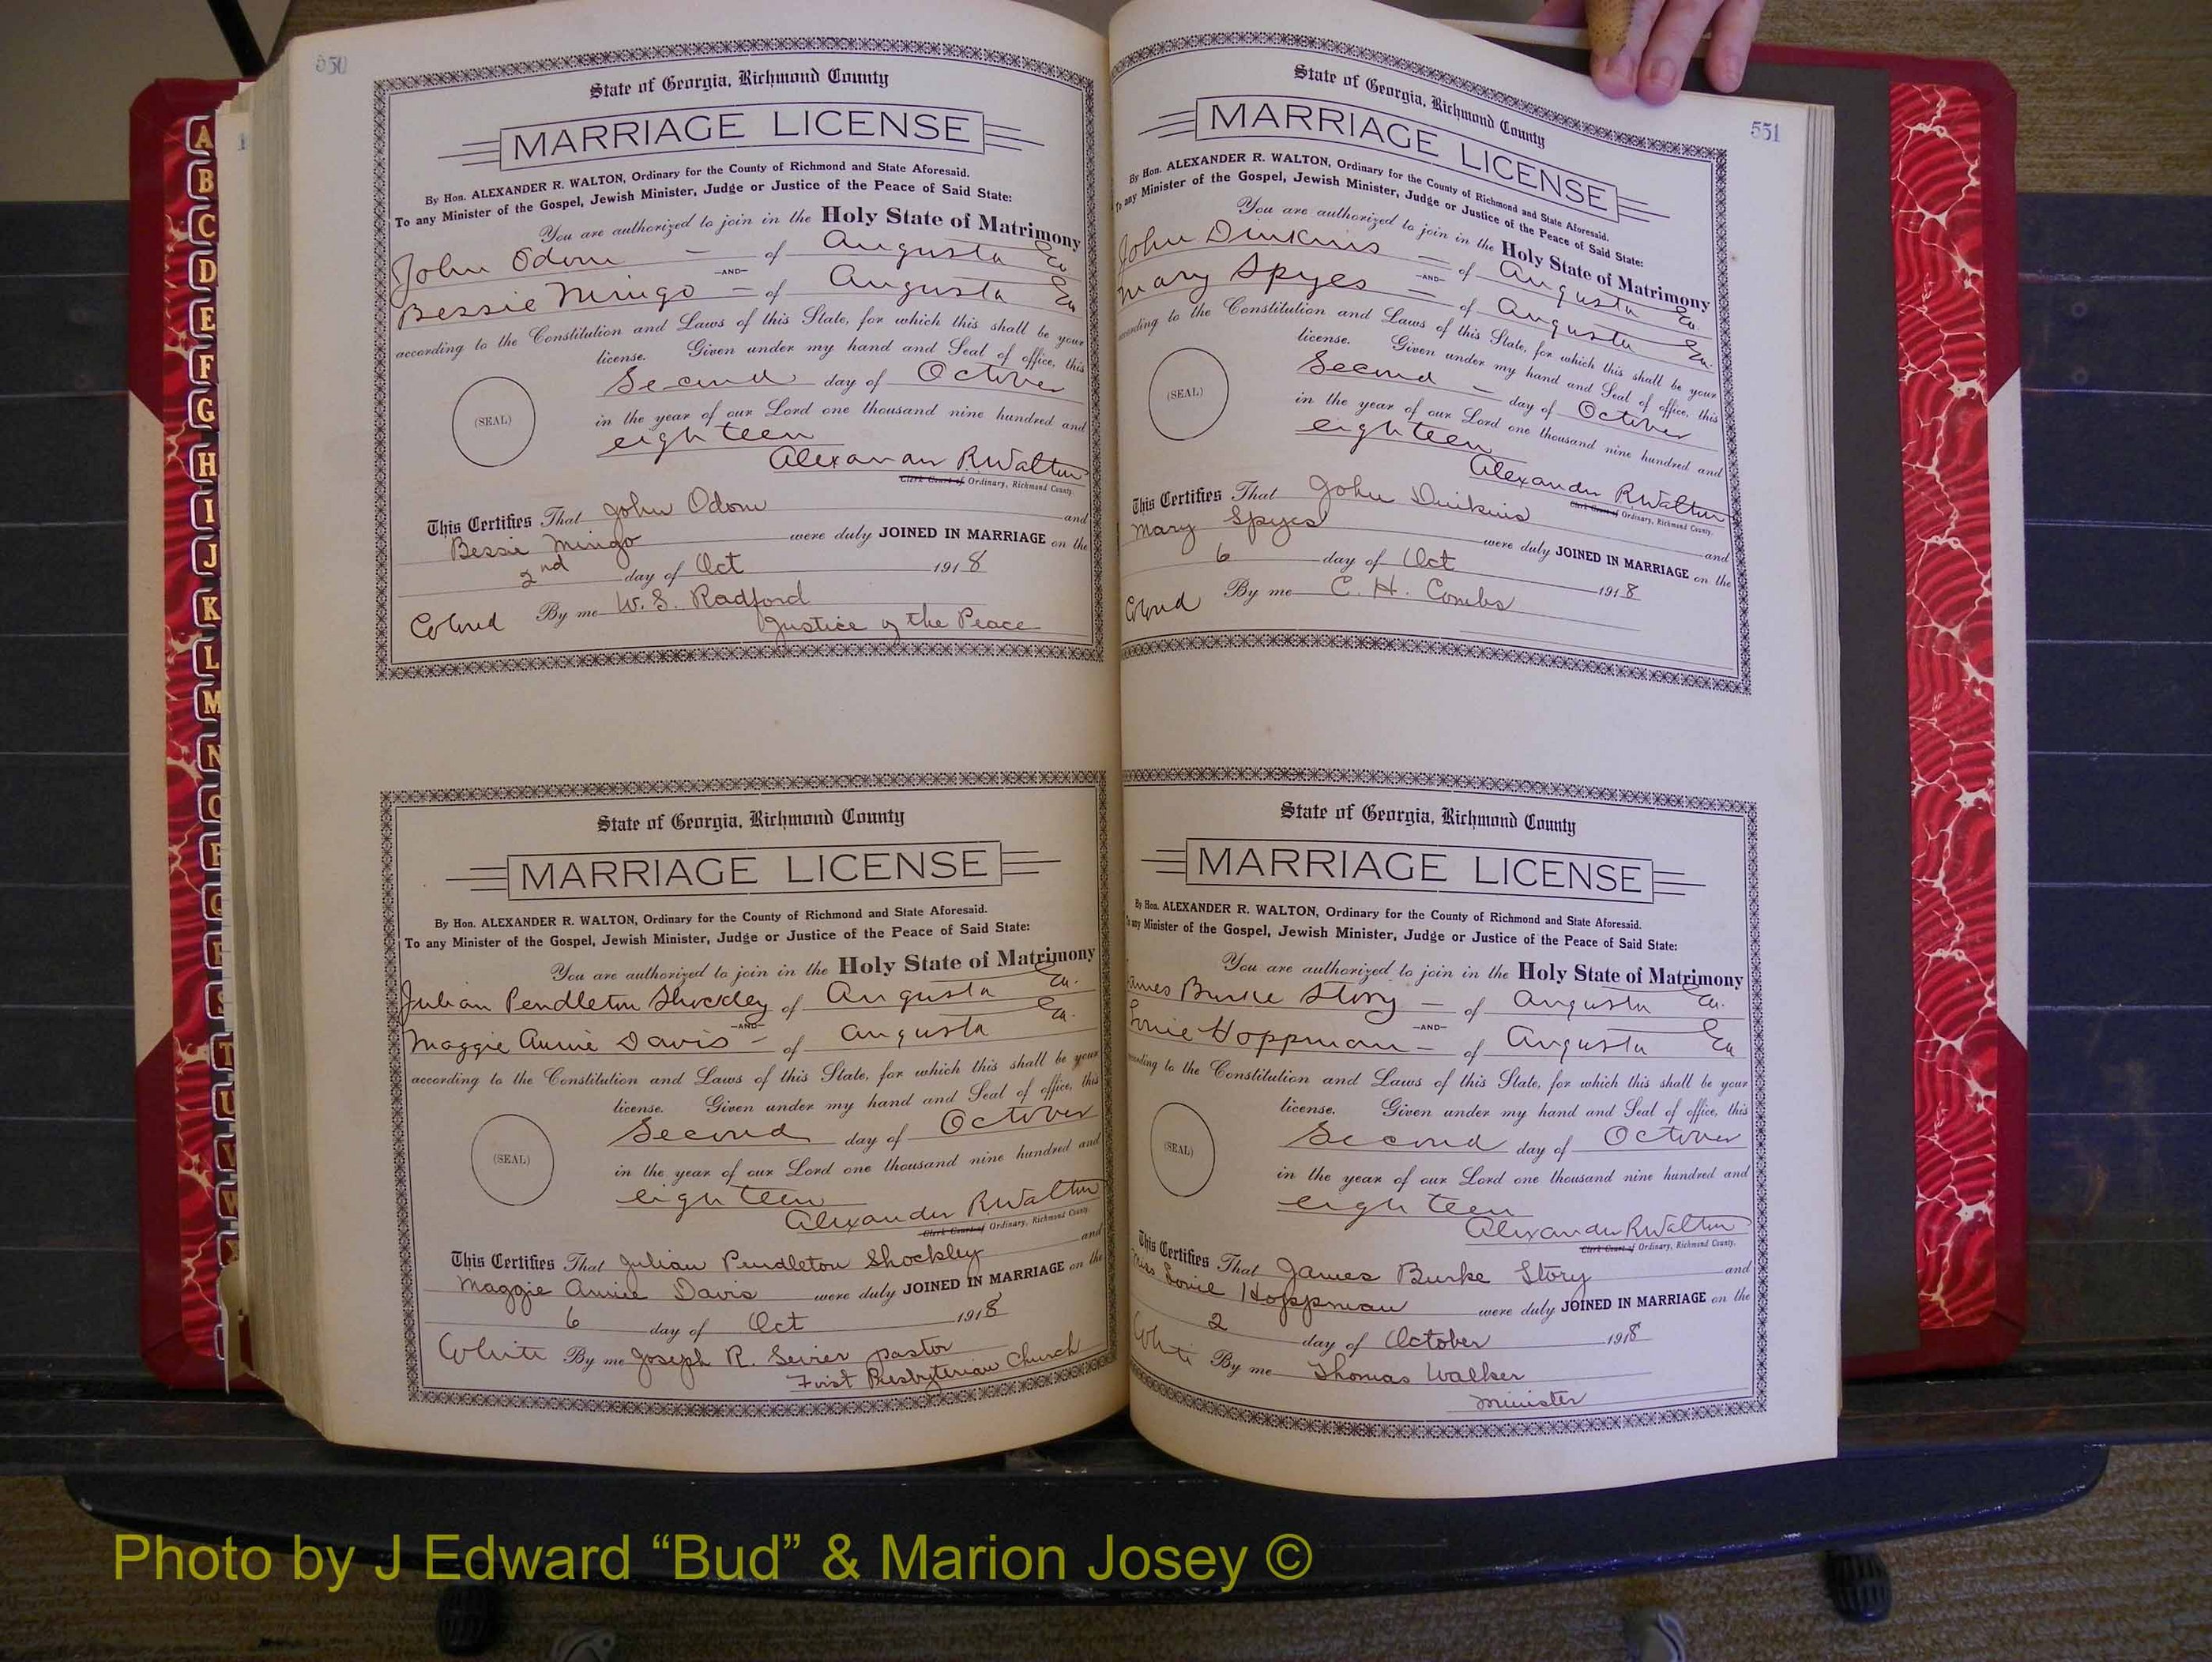 550
State of Georgia, Richmond County
MARRIAGE LICENSE
By Hon. ALEXANDER R. WALTON, Ordinary for the County of Richmond and State Aforesaid.
To any Minister of the Gospel, Jewish Minister, Judge or Justice of the Peace of Said State:
You are authorized to join in the Holy State of Matrimony
John Odom - of Augusta Ga
-AND-
Bessie Mingo - of Augusta Ga
according to the Constitution and Laws of this State, for which this shall be your
license. Given under my hand and Seal of office, this
Second day of October
(SEAL)
in the year of our Lord one thousand nine hundred and
eighteen
Alexander R Walton
Clerk Court of Ordinary, Richmond County.
This Certifies That John Odom and
Bessie Mingo were duly JOINED IN MARRIAGE on the
2nd day of Oct 1918
Colored By me W. S. Radford
Justice of the Peace
State of Georgia, Richmond County
MARRIAGE LICENSE
By Hon. ALEXANDER R. WALTON, Ordinary for the County of Richmond and State Aforesaid.
To any Minister of the Gospel, Jewish Minister, Judge or Justice of the Peace of Said State:
You are authorized to join in the Holy State of Matrimony
Julian Pendleton Shockley of Augusta Ga.
-AND-
Maggie Annie Davis - of Augusta Ga.
according to the Constitution and Laws of this State, for which this shall be your
license. Given under my hand and Seal of office, this
Second day of October
(SEAL)
in the year of our Lord one thousand nine hundred and
eighteen
Alexander R Walton
Clerk Court of Ordinary, Richmond County.
This Certifies That Julian Pendleton Shockley and
Maggie Annie Davis were duly JOINED IN MARRIAGE on the
6 day of Oct 1918
White By me Joseph R. Sevier pastor
First Presbyterian Church
551
State of Georgia, Richmond County
MARRIAGE LICENSE
By Hon. ALEXANDER R. WALTON, Ordinary for the County of Richmond and State Aforesaid.
To any Minister of the Gospel, Jewish Minister, Judge or Justice of the Peace of Said State:
You are authorized to join in the Holy State of Matrimony
John Dinkins - of Augusta Ga.
-AND-
Mary Spyes - of Augusta Ga.
according to the Constitution and Laws of this State, for which this shall be your
license. Given under my hand and Seal of office, this
Second - day of October
(SEAL)
in the year of our Lord one thousand nine hundred and
eighteen
Alexander R Walton
Clerk Court of Ordinary, Richmond County.
This Certifies That John Dinkins and
Mary Spyes were duly JOINED IN MARRIAGE on the
6 day of Oct 1918
Colored By me C. H. Combs
State of Georgia, Richmond County
MARRIAGE LICENSE
By Hon. ALEXANDER R. WALTON, Ordinary for the County of Richmond and State Aforesaid.
To any Minister of the Gospel, Jewish Minister, Judge or Justice of the Peace of Said State:
You are authorized to join in the Holy State of Matrimony
James Burke Story - of Augusta Ga.
-AND-
Hoppman - of Augusta Ga
according to the Constitution and Laws of this State, for which this shall be your
license. Given under my hand and Seal of office, this
Second day of October
(SEAL)
in the year of our Lord one thousand nine hundred and
eighteen
Alexander R Walton
Clerk Court of Ordinary, Richmond County.
This Certifies That James Burke Story and
Miss Hoppman were duly JOINED IN MARRIAGE on the
2 day of October 1918
White By me Thomas Walker
Minister
A
B
C
D
E
F
G
H
I
J
K
L
M
N
O
P
Q
R
S
T
U
V
W
Photo by J Edward “Bud” & Marion Josey ©